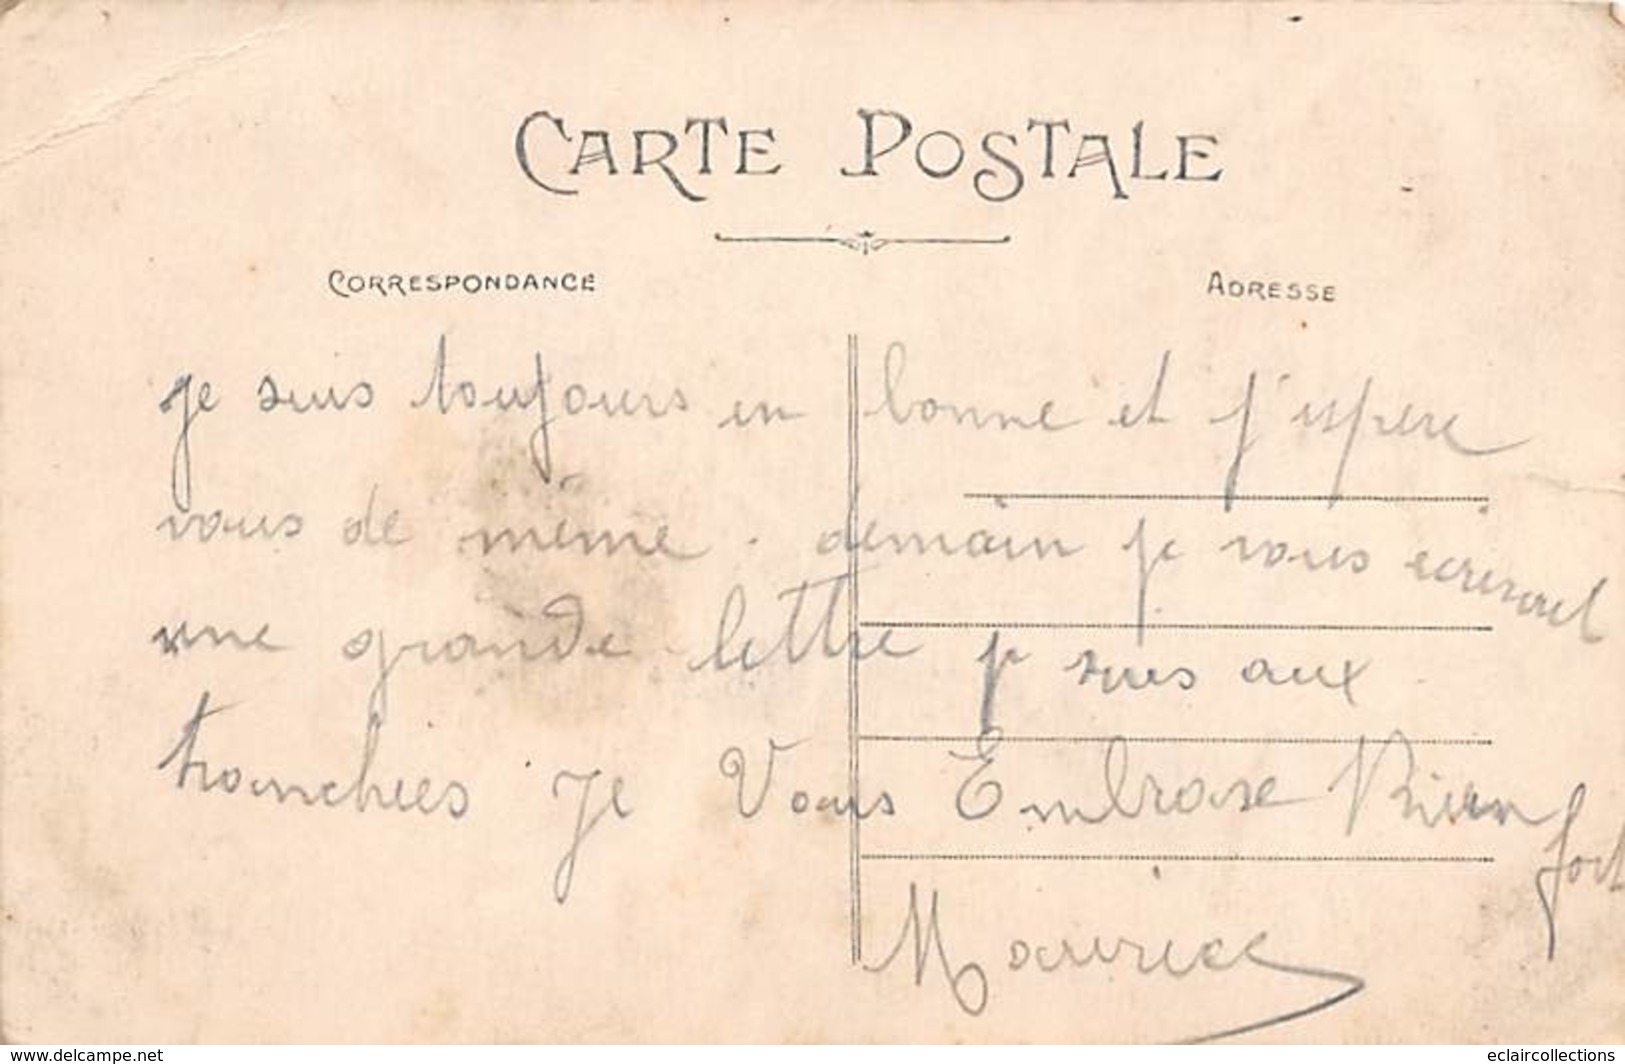 CARTE POSTALE
CORRESPONDANCE
ADRESSE
je suis toujours en bonne et j'espere
vous de même. demain je vous ecriserel
une grande lettre je suis aux
tranchees Je Vous Embrase Bien fort
Maurice
www.delcampe.net
eclaircollections